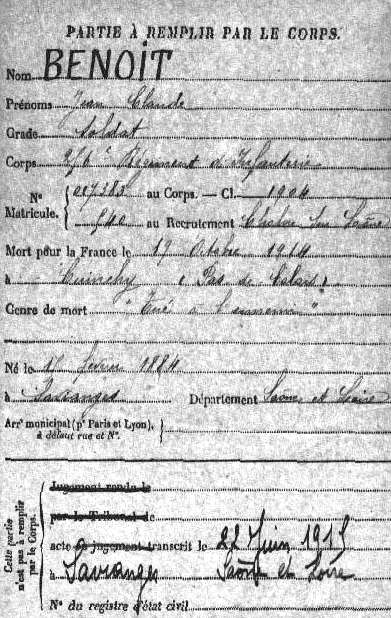 PARTIE À REMPLIR PAR LE CORPS.
Nom BENOIT
Prénoms Jean Claude
Grade Soldat
Corps Régiment d'Infanterie
Nº Matricule. au Corps. — Cl. 1904
940 au Recrutement Chalon sur Saône
Mort pour la France le 17 Octobre 1914
à Cuinchy (Pas de Calais)
Genre de mort "Tué à l'ennemi"
Né le février 1884
à Savianges Département Saône et Loire
Arrt municipal (pr Paris et Lyon), à défaut rue et Nº.
Cette partie n'est pas à remplir par le Corps.
Jugement rendu le
par le Tribunal de
acte de jugement transcrit le 22 Juin 1915
à Savianges Saône et Loire
Nº du registre d'état civil